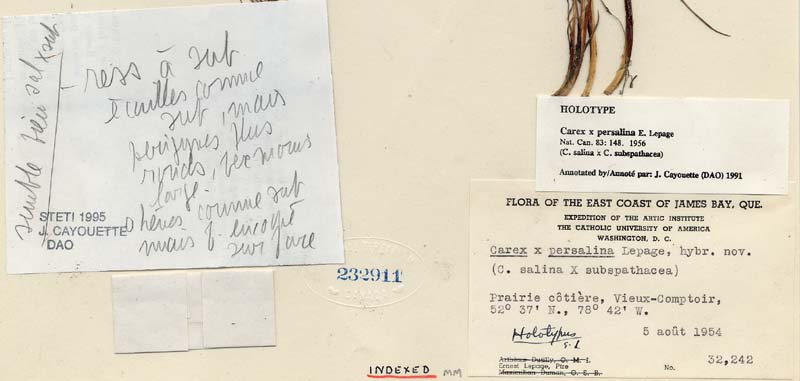 semble bien sal x sub
– ress à sub
écailles comme
sub, mais
périgynes plus
ronds, bec moins
large
akènes comme sub
mais f. encoche
sur face
STETI 1995
J. CAYOUETTE
DAO
232911
INDEXED
MM
HOLOTYPE
Carex x persalina E. Lepage
Nat. Can. 83: 148. 1956
(C. salina x C. subspathacea)
Annotated by/Annoté par: J. Cayouette (DAO) 1991
FLORA OF THE EAST COAST OF JAMES BAY, QUE.
EXPEDITION OF THE ARTIC INSTITUTE
THE CATHOLIC UNIVERSITY OF AMERICA
WASHINGTON, D. C.
Carex x persalina Lepage, hybr. nov.
(C. salina X subspathacea)
Prairie côtière, Vieux-Comptoir,
52° 37' N., 78° 42' W.
Holotypus
5 août 1954
Arthème Dutilly, O. M. I.
Ernest Lepage, Ptre
Maximilian Duman, O. S. B.
No. 32,242